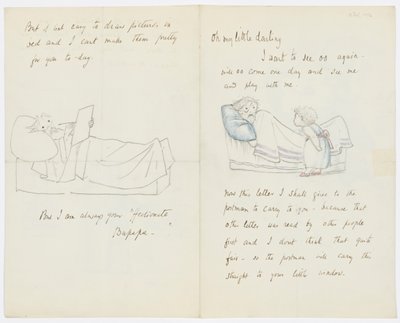 But it isnt easy to draw pictures in
bed and I cant make them pretty
for you to-day.
But I am always your 'ffectionate
Bapapa -
Oh my little darling
I want to see oo again -
will oo come one day and see me
and play with me.
Now this letter I shall give to the
postman to carry to you - because that
other letter was read by other people
first and I dont think that quite
fair - so the postman will carry this
straight to your little window.